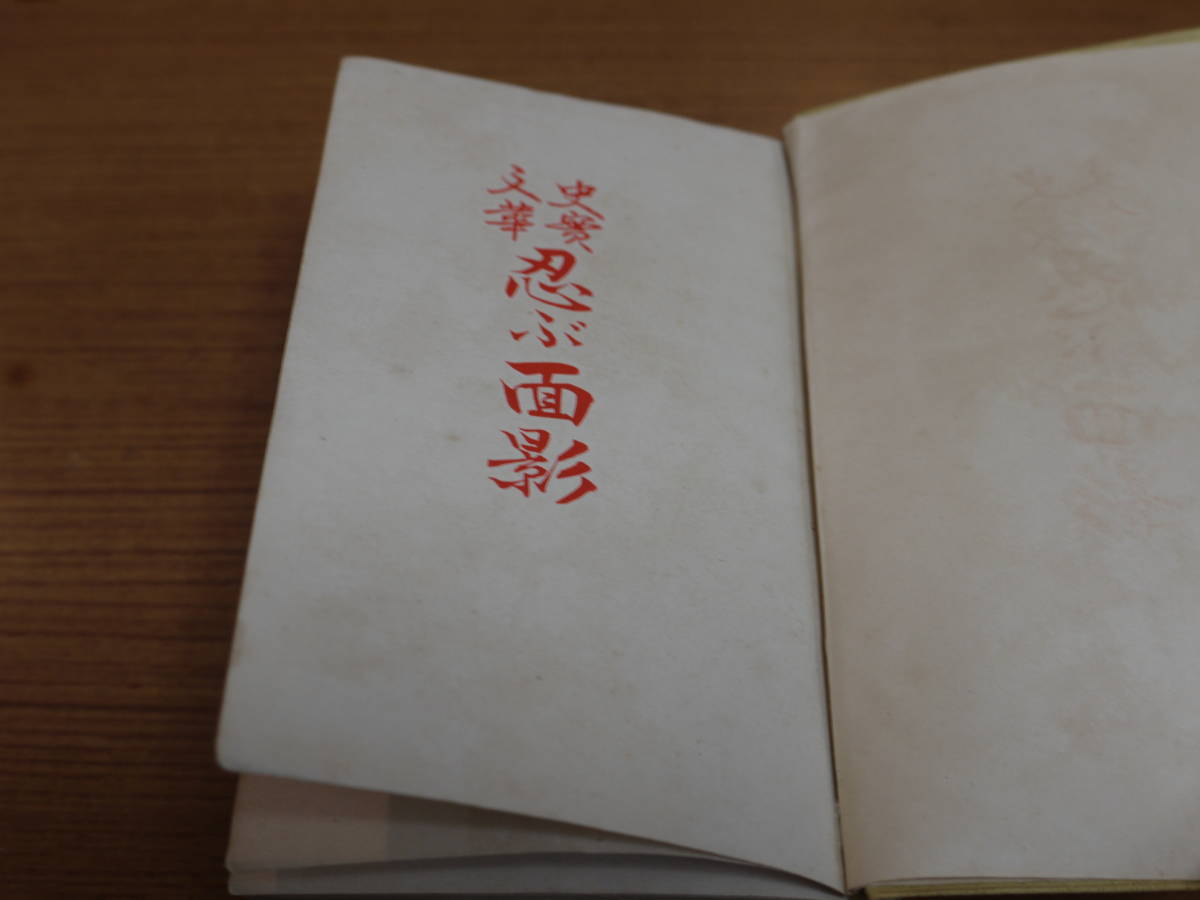 史實
文華
忍ぶ面影